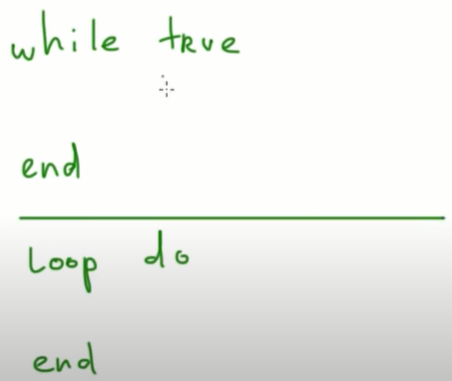 while true
end
Loop do
end